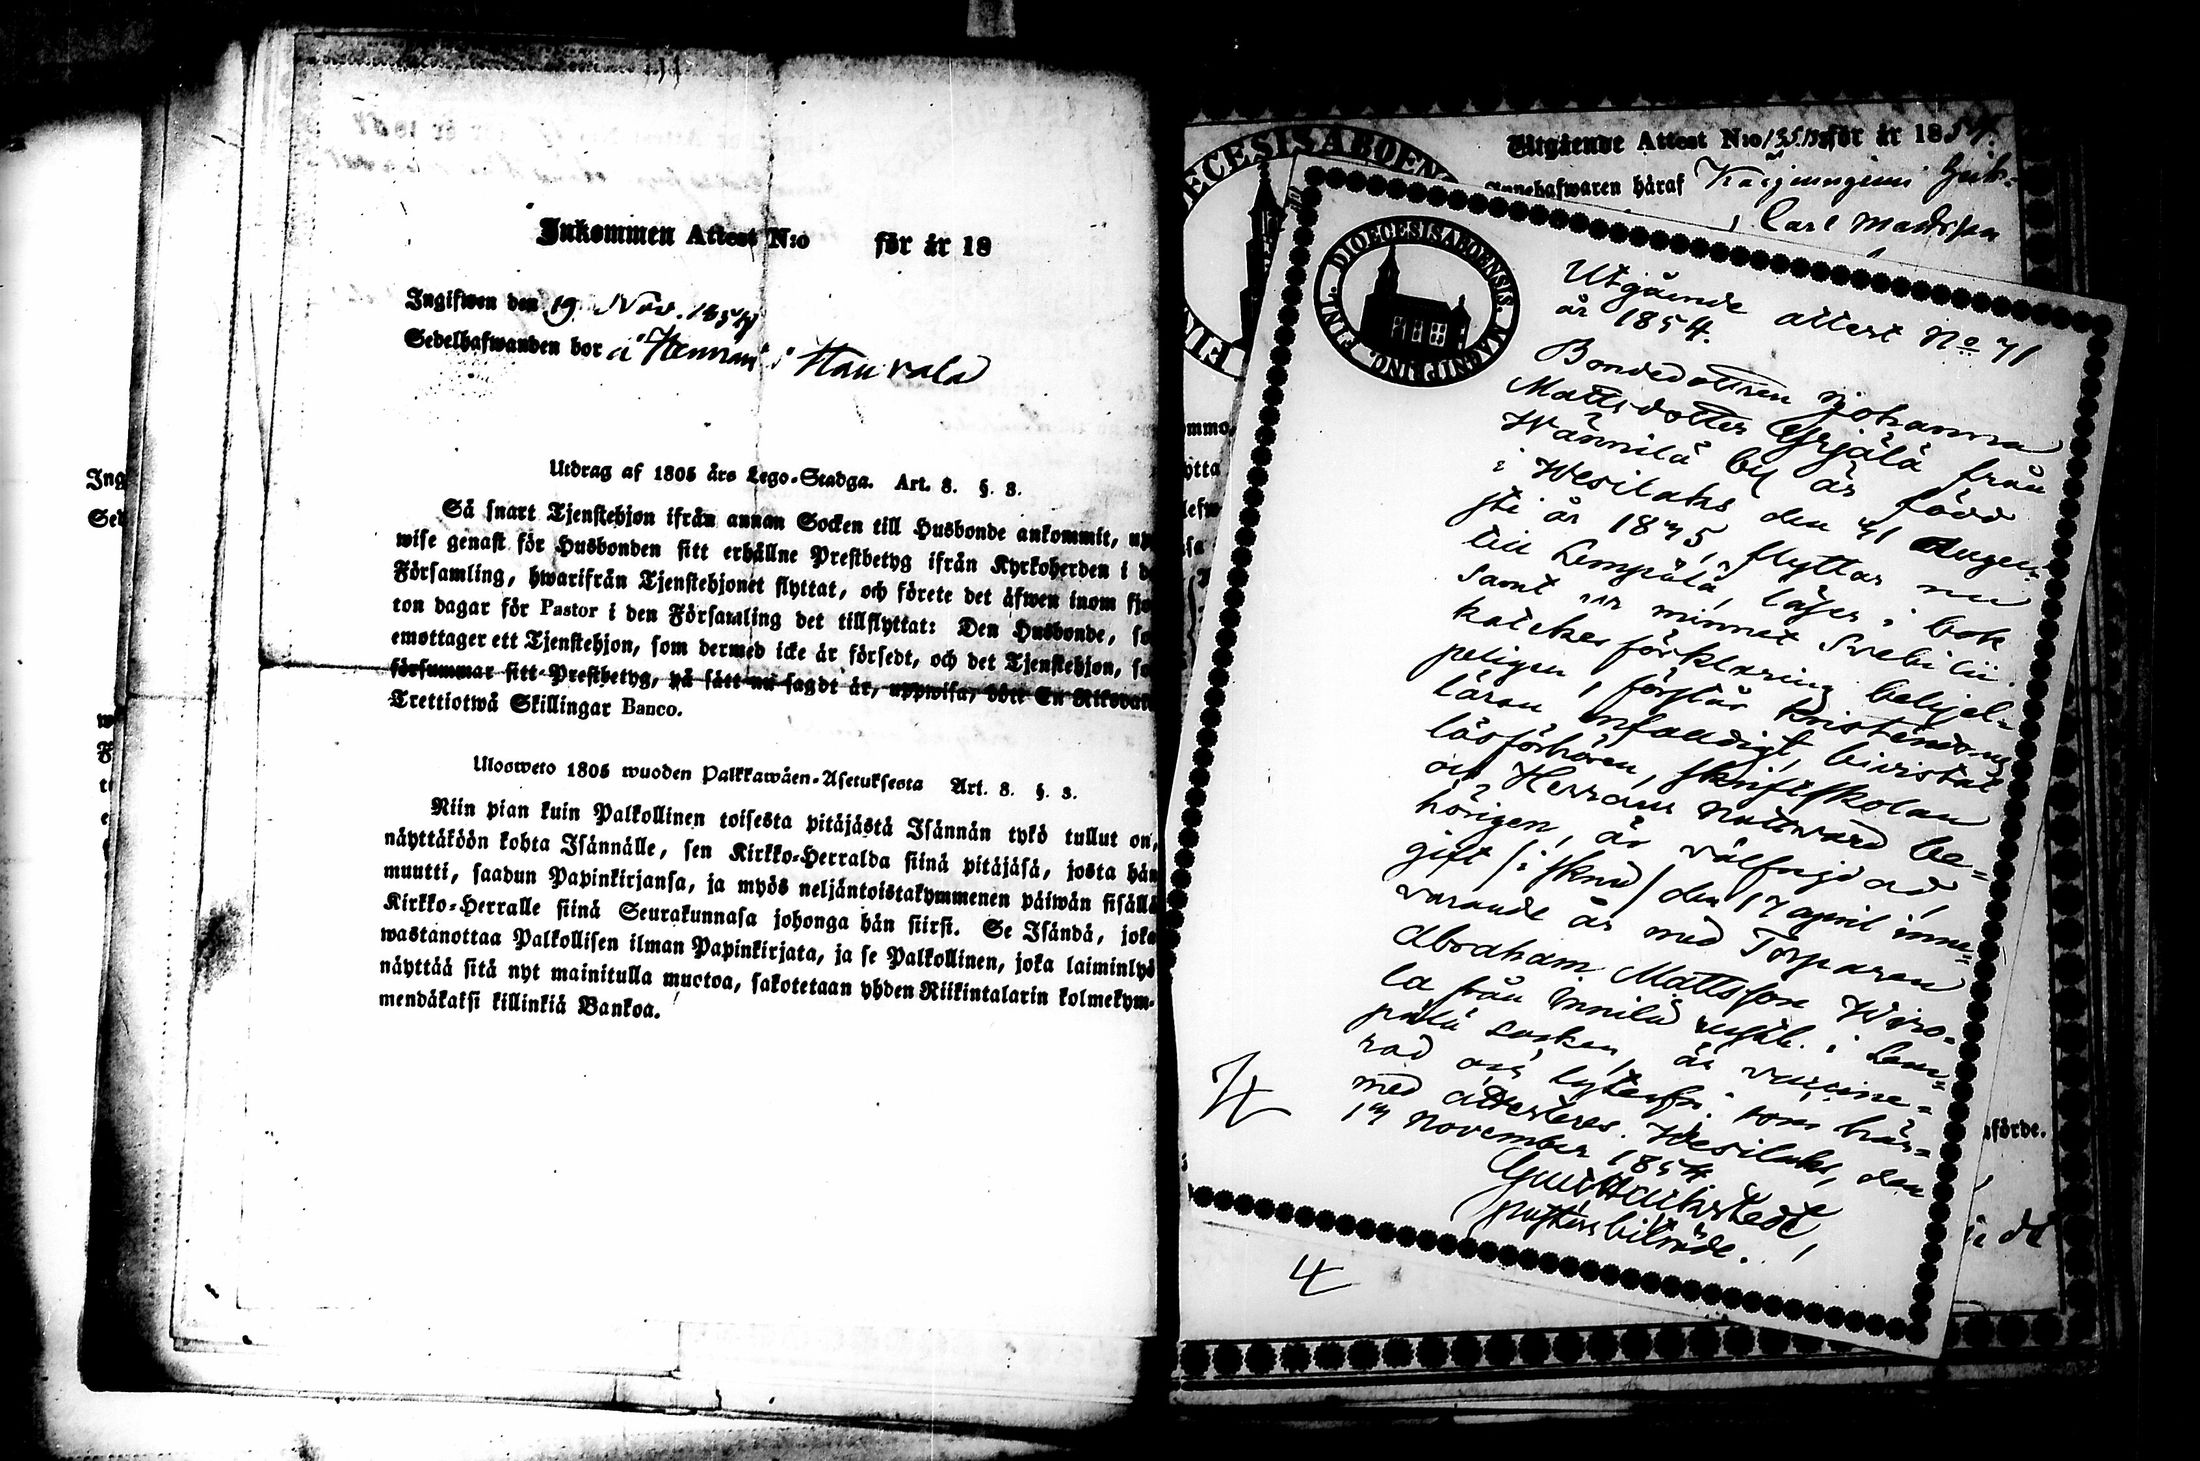 Inkommen Attest N:o för år 18
Ingifwen den 19 Nov. 1854
Sedelhafwanden bor å Hennari i Haurala
Utdrag af 1805 års Lego-Stadga. Art. 8. §. 3.
Så snart Tjenstehjon ifrån annan Socken till Husbonde ankommit, up
wise genast för Husbonden sitt erhållne Prestbetyg ifrån Kyrkoherden i d
Församling, hwarifrån Tjenstehjonet flyttat, och förete det äfwen inom fjo
ton dagar för Pastor i den Församling det tillflyttat: Den Husbonde, so
emottager ett Tjenstehjon, som dermed icke är försedt, och det Tjenstehjon, so
försummar sitt Prestbetyg, på sätt nu sagdt är, uppwisa, böte En Riksdal
Trettiotwå Skillingar Banco.
Ulosweto 1805 wuoden Palkkawäen-Asetuksesta Art. 8. §. 3.
Niin pian kuin Palkollinen toisesta pitäjästä Isännän tykö tullut on,
näyttäköön kohta Isännälle, sen Kirkko-Herralda siinä pitäjäsä, josta hän
muutti, saadun Papinkirjansa, ja myös neljäntoistakymmenen päiwän sisällä
Kirkko-Herralle siinä Seurakunnasa johonga hän siirsi. Se Isändä, joka
wastanottaa Palkollisen ilman Papinkirjata, ja se Palkollinen, joka laiminlyö
näyttää sitä nyt mainitulla muotoa, sakotetaan yhden Riikintalarin kolmekym-
mendäkaksi killinkiä Bankoa.
Ing
Sed
Utgående Attest N:o för år 1854.
Innehafwaren häraf
Carl Mattsson
DIOECESIS ABOENSIS. MAGNI PRING. FINL.
Utgående attest No 71
år 1854.
Bondedottren Johanna
Mattsdotter Yrjälä från
Wännilä by är född
i Wesilaks den 31 Augu-
sti år 1835, flyttar nu
till Lempälä, läser i bok
samt ur minnet Svebilii
kateches förklaring behjel-
peligen, förstår Kristendoms
läran enfaldigt, bivistat
läsförhören, skriftskolan
och Herrans Nattvard be-
hörigen, är välfrejdad,
gift (: sknd) den 17 april inne-
varande år med Torparen
Abraham Mattsson Wiro-
la från Innilä rusth. i Lem-
pälä socken, är vaccine-
rad och lytesfri: som här-
med attesteras. Wesilaks, den
17 November 1854
pastorsbiträde.
förde.